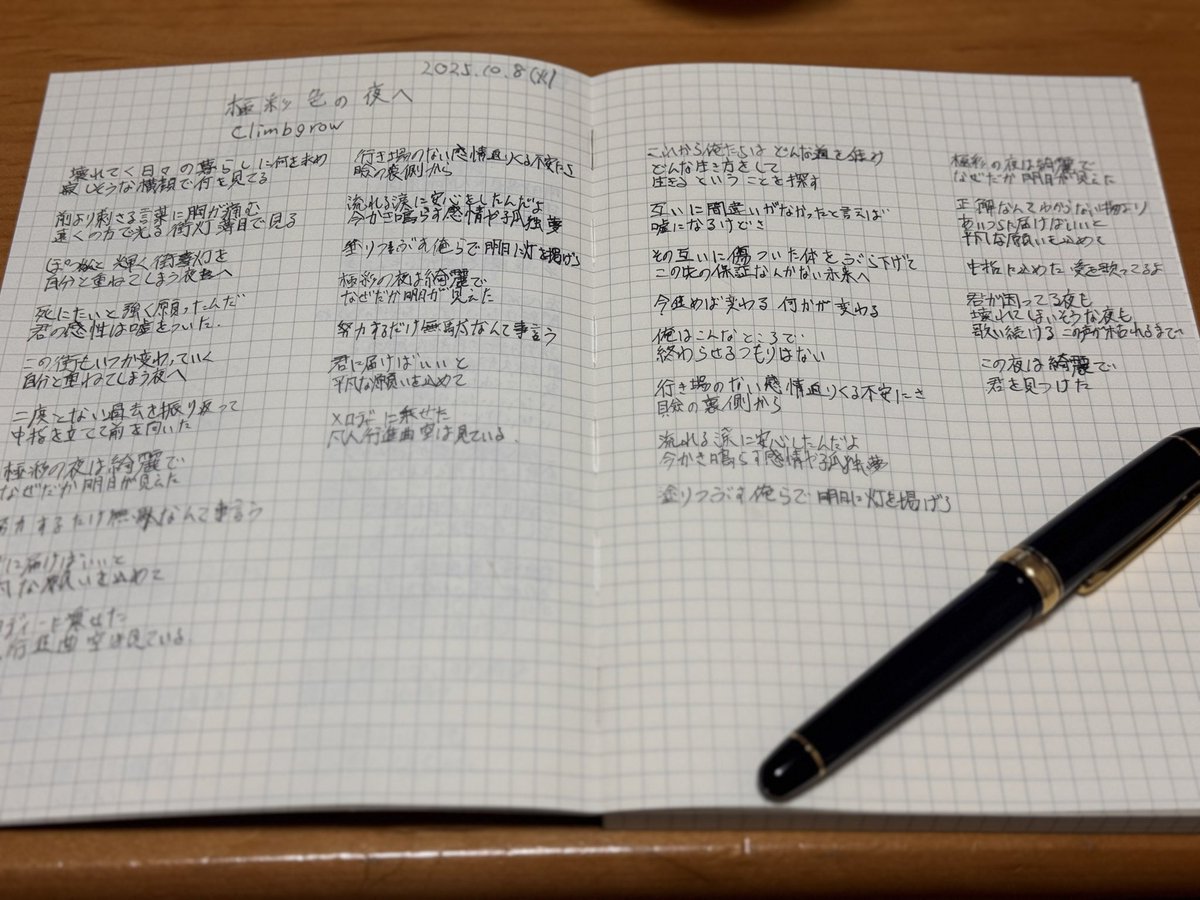 2025.10.8(火)
極彩色の夜へ
Climbgrow
壊れてく日々の暮らしに何を求め
寂しそうな横顔で何を見てる
前より刺さる言葉に胸が痛む
遠くの方で光る街灯薄目で見る
ぽつんと輝く街灯を
自分と重ねてしまう夜へ
死にたいと強く願ったんだ
君の感性は嘘をついた.
この街もいつか変わっていく
自分と重ねてしまう夜へ
二度とない過去を振り返って
中指を立てて前を向いた
極彩の夜は綺麗で
なぜだか明日が見えた
力するだけ無駄なんて事言う
に届けばいいと
な願いを込めて
ディーに乗せた
行進曲空は見ている
行き場のない感情迫りくる不安たち
瞼の裏側から
流れる涙に安心をしたんだよ
今かき鳴らす感情や孤独夢
塗りつぶす俺らで明日に灯を掲げろ
極彩の夜は綺麗で
なぜだか明日が見えた
努力するだけ無駄なんて事言う
君に届けばいいと
平凡な願いを込めて
メロディーに乗せた
凡人行進曲空は見ている.
これから俺たちは どんな道を進み
どんな生き方をして
生きる ということを探す
互いに間違いがなかったと言えば
嘘になるけどさ
その互いに傷ついた体をぶら下げて
この先の保証なんかない未来へ
今進めば変わる 何かが変わる
俺はこんなところで
終わらせるつもりはない
行き場のない感情迫りくる不安にさ
自分の裏側から
流れる涙に安心したんだよ
今かき鳴らす感情や孤独夢
塗りつぶす俺らで明日に灯を掲げろ
極彩の夜は綺麗で
なぜだか明日が見えた
正解なんてわからない物より
あいつらに届けばいいと
平凡な願いを込めて
中指に込めた 愛を歌ってるよ
君が困ってる夜も
壊れてしまいそうな夜も
歌い続ける この声が枯れるまで
この夜は綺麗で
君を見つけた